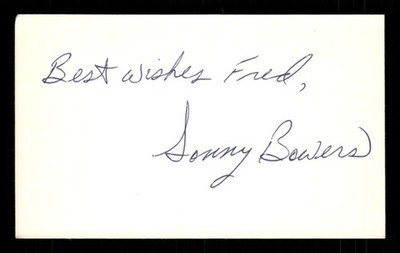 Best wishes Fred,
Sonny Bowers